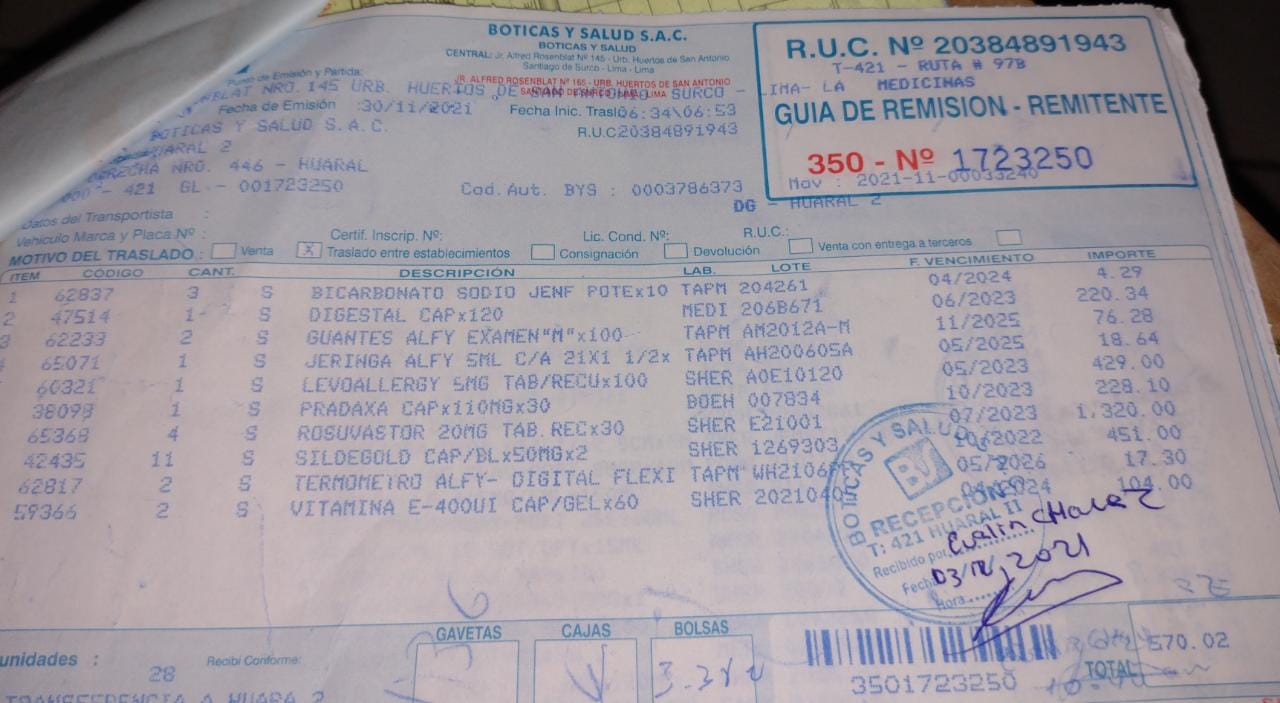 BOTICAS Y SALUD S.A.C.
BOTICAS Y SALUD
CENTRAL: Jr. Alfred Rosenblat Nº 145 - Urb. Huertos de San Antonio
Santiago de Surco - Lima - Lima
JR. ALFRED ROSENBLAT Nº 165 - URB. HUERTOS DE SAN ANTONIO
SANTIAGO DE SURCO - LIMA - LIMA
R.U.C. Nº 20384891943
T-421 - RUTA # 97B
MEDICINAS
GUIA DE REMISION - REMITENTE
350 - Nº 1723250
Mov : 2021-11-00033240
Punto de Emisión y Partida:
NBLAT NRO. 145 URB. HUERTOS DE SAN ANTONIO SURCO - IMA- LA
Fecha de Emisión :30/11/2021 Fecha Inic. Trasl 06:34\06:53
BOTICAS Y SALUD S.A.C. R.U.C 20384891943
HUARAL 2
DERECHA NRO. 446 - HUARAL
000 - 421 GL - 001723250 Cod.Aut. BYS : 0003786373
DG - HUARAL 2
Datos del Transportista :
Vehículo Marca y Placa Nº : Certif. Inscrip. Nº: Lic. Cond. Nº: R.U.C.:
MOTIVO DEL TRASLADO : Venta X Traslado entre establecimientos Consignación Devolución Venta con entrega a terceros
ITEM CÓDIGO CANT. DESCRIPCIÓN LAB. LOTE F. VENCIMIENTO IMPORTE
1 62837 3 S BICARBONATO SODIO JENF POTEx10 TAPM 204261 04/2024 4.29
2 47514 1 S DIGESTAL CAPx120 MEDI 206B671 06/2023 220.34
3 62233 2 S GUANTES ALFY EXAMEN"M"x100 TAPM AM2012A-M 11/2025 76.28
65071 1 S JERINGA ALFY 5ML C/A 21X1 1/2x TAPM AH200605A 05/2025 18.64
60321 1 S LEVOALLERGY 5MG TAB/RECUx100 SHER A0E10120 05/2023 429.00
38098 1 S PRADAXA CAPx110MGx30 BOEH 007834 10/2023 228.10
65368 4 S ROSUVASTOR 20MG TAB.RECx30 SHER E21001 07/2023 1,320.00
42435 11 S SILDEGOLD CAP/BLx50MGx2 SHER 1269303 10/2022 451.00
62817 2 S TERMOMETRO ALFY- DIGITAL FLEXI TAPM WH2106 05/2026 17.30
59366 2 S VITAMINA E-400UI CAP/GELx60 SHER 2021040 04/2024 104.00
BOTICAS Y SALUD
RECEPCIÓN
T: 421 HUARAL II
Recibido por Evelin
Fecha 03/12/2021
Hora
GAVETAS CAJAS BOLSAS
unidades : 28 Recibí Conforme:
TRANSFERENCIA A HUARA 2
3501723250
TOTAL 570.02